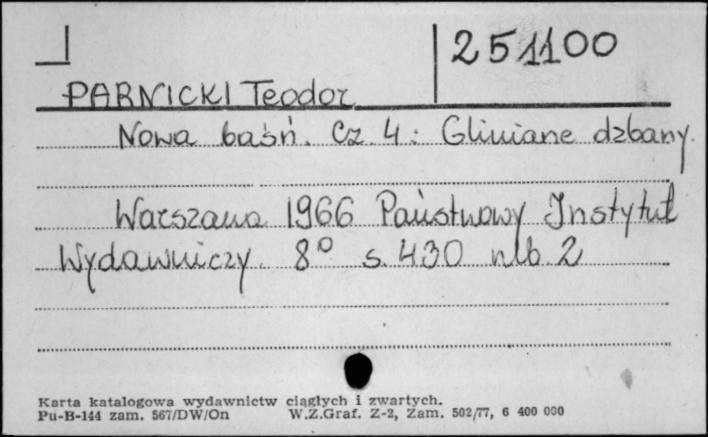 251100
PARNICKI Teodor
Nowa baśń. Cz. 4: Gliniane dzbany.
Warszawa 1966 Państwowy Instytut
Wydawniczy. 8° s. 430 nlb 2
Karta katalogowa wydawnictw ciągłych i zwartych.
Pu-B-144 zam. 567/DW/On W.Z.Graf. Z-2, Zam. 502/77, 6 400 000